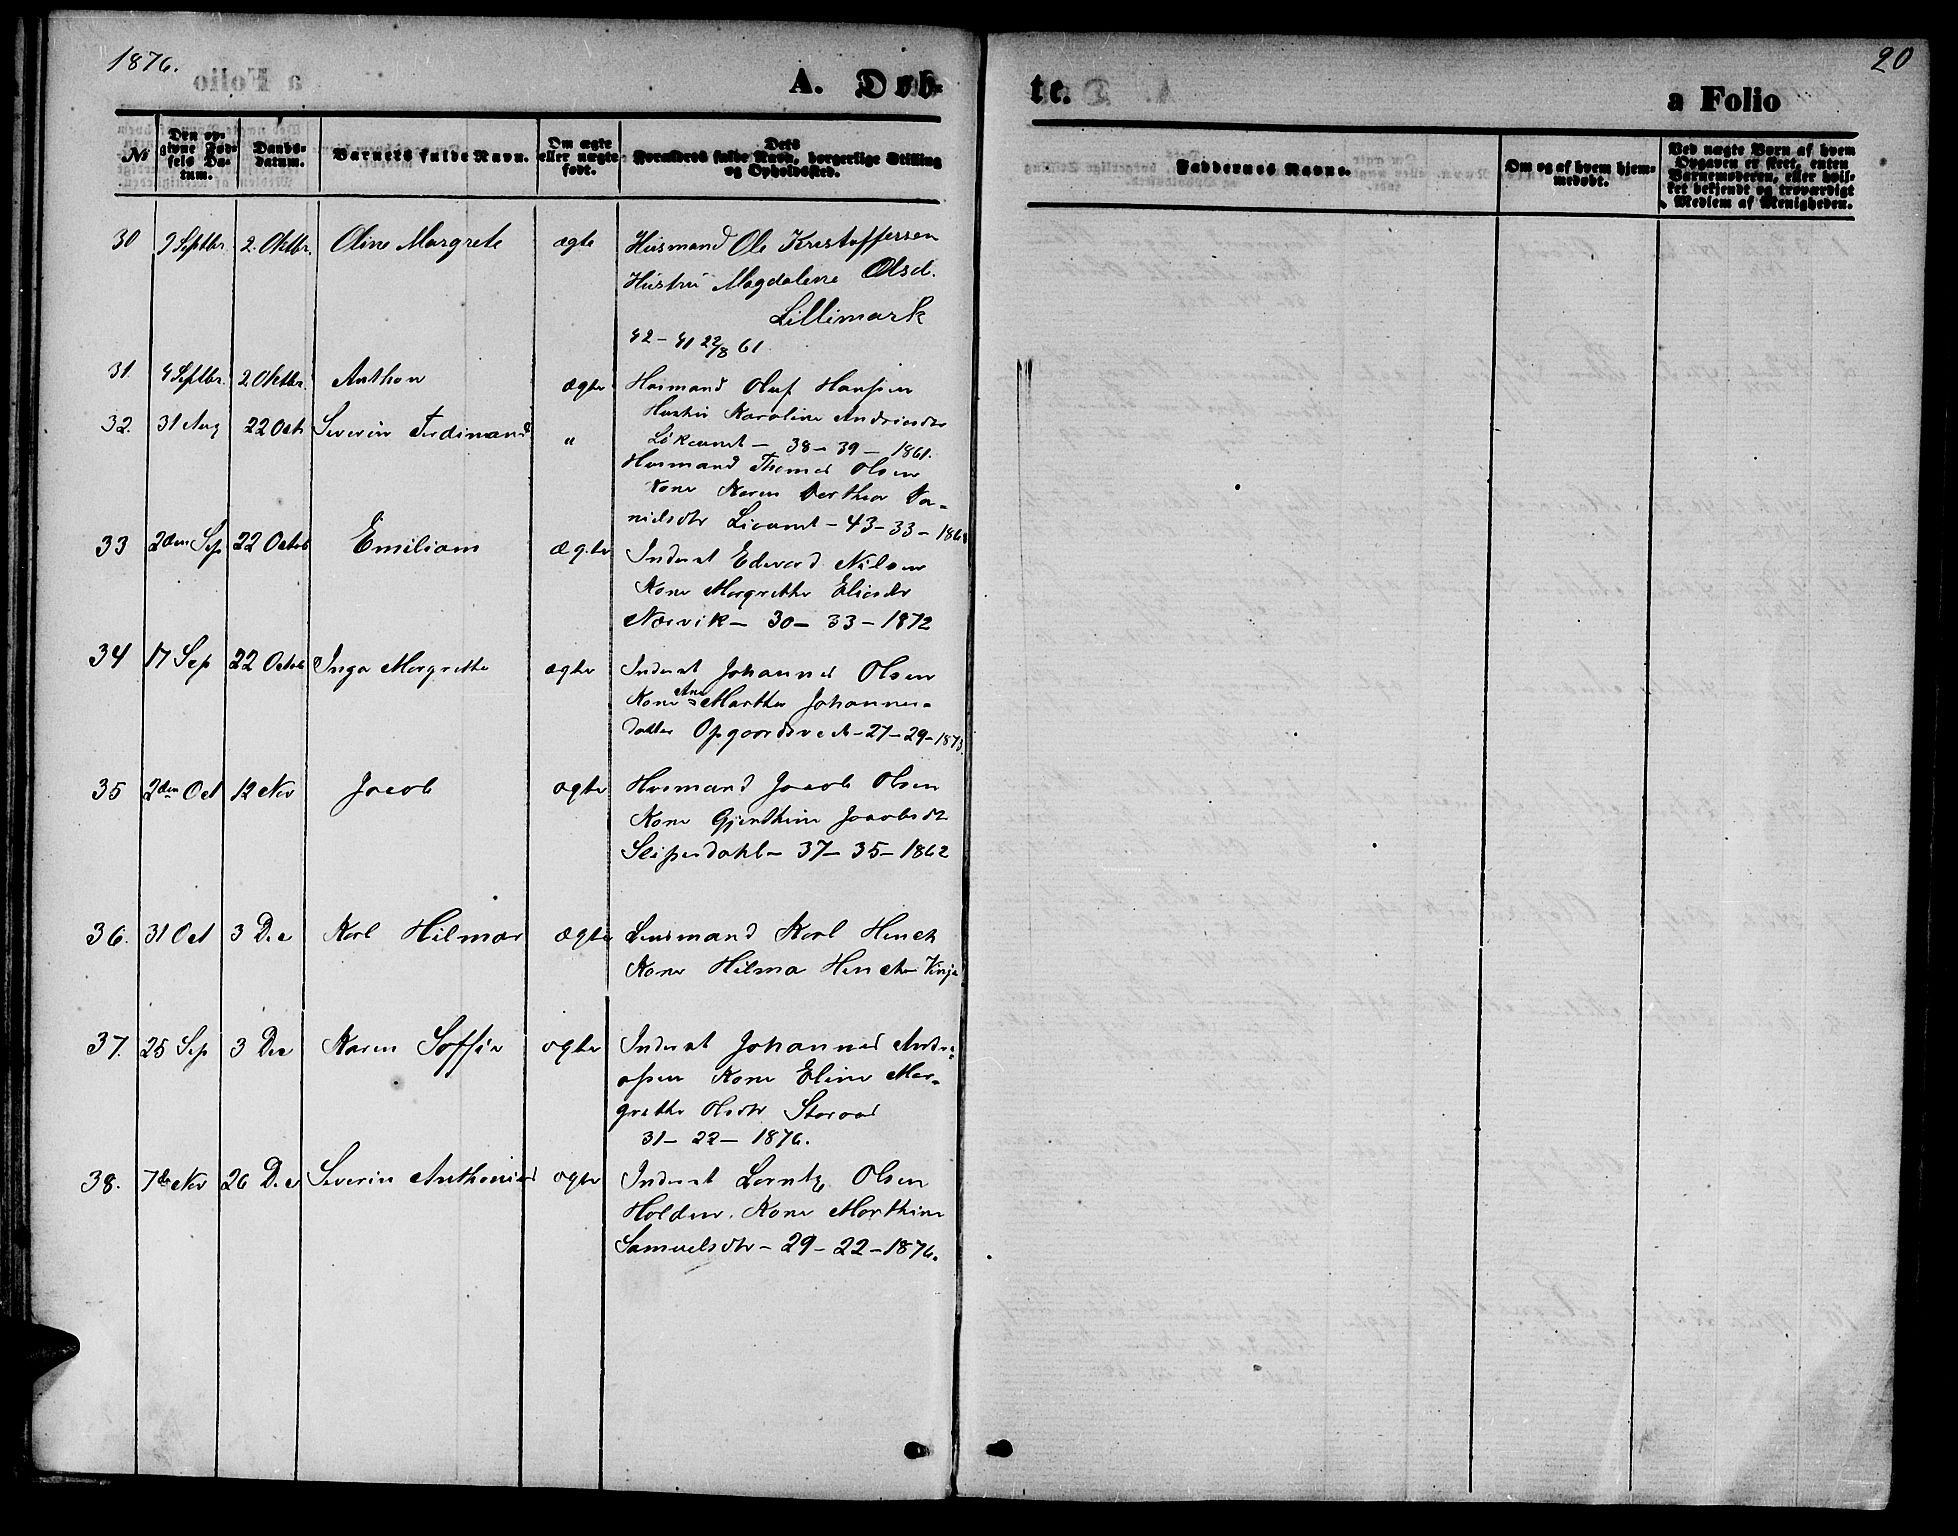 1876.
20
A. Døb-
te.
a Folio
No
Den op-
givne Fød-
sels Da-
tum.
Daabs-
datum.
Barnets fulde Navn.
Om ægte
eller uægte
født.
Dets
Forældres fulde Navn, borgerlige Stilling
og Opholdssted.
Faddernes Navne.
Om og af hvem hjem-
medøbt.
Ved uægte Børn af hvem
Opgaven er skeet, enten
Barnemoderen, eller hvil-
ket bekjendt og troværdigt
Medlem af Menigheden.
30 9 Septbr. 2. Oktbr. Oline Margrete ægte Husmand Ole Kristoffersen
Hustru Magdalene Olsd.
Lillimark
42 - 41 22/8 61
31. 4 Septbr. 2 Oktbr. Anthon ægte Husmand Oluf Hansen
Hustru Karoline Andriasdtr
- 38 - 39 - 1861.
32. 31 Aug 22 Oct Severin Ferdinand "
Husmand Thomas Olsen
Kone Karen Berthea Da-
nielsdtr - 43 - 33 - 186
33 2den Sep 22 Octob Emilian ægte Inderst Edvard Nilsen
Kone Margrethe Eliasdr
Nærvik - 30 - 33 - 1872
34 17 Sep 22 Octob Inga Margrethe ægte Inderst Johannes Olsen
Kone Ane Martha Johannes-
datter - 27 - 29 - 1873.
35 2den Oct 12 Nov Jacob ægte Husmand Jacob Olsen
Kone Gjerthine Jacobsdt
Slipesdahl - 37 - 35 - 1862
36. 31 Oct 3 Dec Karl Hilmar ægte Lensmand Karl Hench
Kone Hilma Hench Vinje
37. 25 Sep 3 Dec Karen Soffie ægte Inderst Johannes Andre-
asen Kone Eline Mar-
grethe Olsdtr Storaas
31 - 22 - 1876.
38. 7de Nov 26 Dec Severin Anthonius ægte Inderst Lorntz Olsen
Holden. Kone Marthine
Samuelsdtr - 29 - 22 - 1876.